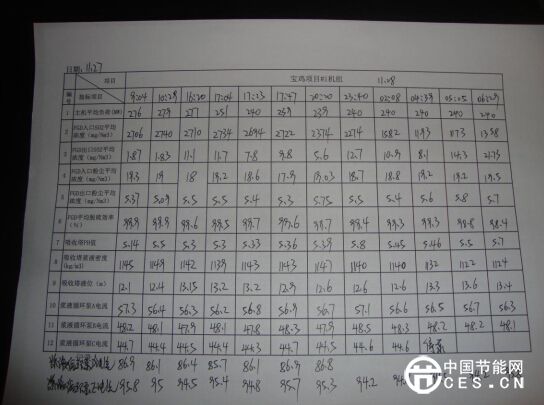 日期: 11.27
项目 宝鸡项目#1机组 11.08
编号 指标项目 9:04 10:29 16:20 17:04 17:23 17:47 20:20 23:40 02:08 04:38 05:05 06:29
1 主机平均负荷(MW) 276 279 271 251 240 239 240 240 240 240 240 240
2 FGD入口SO2平均浓度(mg/Nm3) 2706 2740 2710 2734 2694 2722 2374 2274 1582 1193 1173 1358
3 FGD出口SO2平均浓度(mg/Nm3) 1.87 1.83 11.1 11.7 7.8 9.8 5.6 12.7 10.9 8.1 14.3 21.73
4 FGD入口粉尘平均浓度(mg/Nm3) 19.3 19 18 19.2 18.6 17.9 19.03 18.7 18.8 19.2 19.2 19.5
5 FGD出口粉尘平均浓度(mg/Nm3) 5.37 5.09 5.5 5.5 5.4 5.3 5.75 5.5 5.4 5.6 5.8 5.7
6 FGD平均脱硫效率(%) 99.9 99.9 99.6 99.5 99.7 99.6 99.7 99.4 99.3 99.3 98.8 98.4
7 吸收塔PH值 5.14 5.5 5.3 5.33 5.36 5.39 5.8 5.45 5.46 5.5 5.7
8 吸收塔浆液密度(kg/m3) 1145 1149 1142 1139 1143 1143 1147 1140 1140 1132 1122 1124
9 吸收塔液位(m) 12.1 12.4 13.15 13.2 13.2 12.9 12.6 12.6 12.6 13.3 13.6 13.4
10 浆液循环泵A电流 57.3 56.4 56.3 56.2 56.8 56.9 56.7 57.1 56.6 56.5 56.7 56.3
11 浆液循环泵B电流 48.2 48.1 47.9 48.1 47.8 48.3 47.9 48.5 48.3 48.2 48.2 48.1
12 浆液循环泵C电流 44.7 44.4 44.5 44.4 44.3 44.7 44.5 44.6 44.6 停泵
86.9 86.1 86.4 85.7 86.1 86.9 86.8
95.8 95 95.4 95.4 94.8 95.7 95.3 94.2
中国节能网
CES.CN